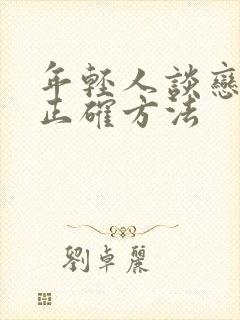 年輕人談戀
正確方法
劉卓麗